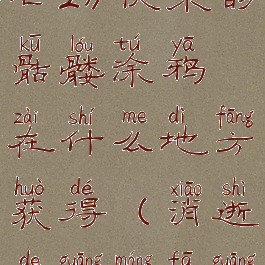 kū lóu tú yā
骷髅涂鸦
zài shí me dì fāng
在什么地方
huò dé xiāo shì
获得（消逝
de guāng máng fā guāng